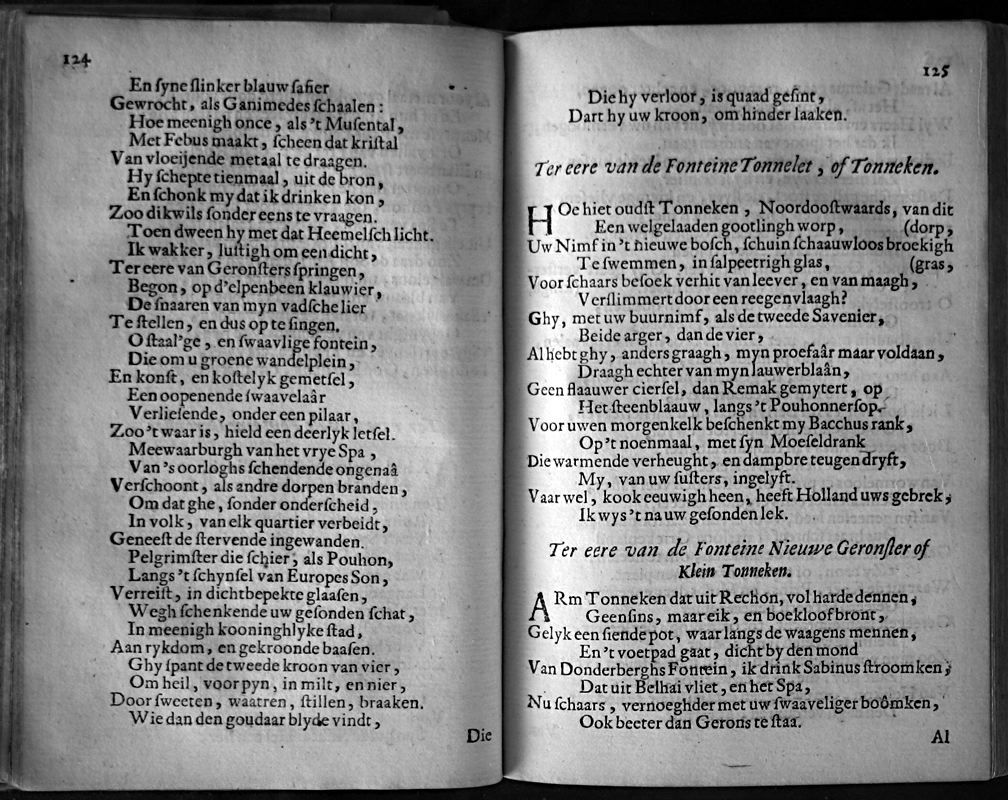 124
En ſyne ſlinker blauw ſafier
Gewrocht, als Ganimedes ſchaalen :
Hoe meenigh once, als 't Muſental,
Met Febus maakt, ſcheen dat kriſtal
Van vloeijende metaal te draagen.
Hy ſchepte tienmaal, uit de bron,
En ſchonk my dat ik drinken kon,
Zoo dikwils ſonder eens te vraagen.
Toen dween hy met dat Heemelſch licht.
Ik wakker, luſtigh om een dicht,
Ter eere van Geronſters ſpringen,
Begon, op d'elpenbeen klauwier,
De ſnaaren van myn vadſche lier
Te ſtellen, en dus op te ſingen.
O ſtaal'ge, en ſwaavlige fontein,
Die om u groene wandelplein,
En konſt, en koſtelyk gemetſel,
Een oopenende ſwaavelaâr
Verlieſende, onder een pilaar,
Zoo 't waar is, hield een deerlyk letſel.
Meewaarburgh van het vrye Spa,
Van 's oorloghs ſchendende ongenaâ
Verſchoont, als andre dorpen branden,
Om dat ghe, ſonder onderſcheid,
In volk, van elk quartier verbeidt,
Geneeſt de ſtervende ingewanden.
Pelgrimſter die ſchier, als Pouhon,
Langs 't ſchynſel van Europes Son,
Verreiſt, in dichtbepekte glaaſen,
Wegh ſchenkende uw geſonden ſchat,
In meenigh kooninghlyke ſtad,
Aan rykdom, en gekroonde baaſen.
Ghy ſpant de tweede kroon van vier,
Om heil, voor pyn, in milt, en nier,
Door ſweeten, waatren, ſtillen, braaken.
Wie dan den goudaar blyde vindt,
Die
125
Die hy verloor, is quaad geſint,
Dart hy uw kroon, om hinder laaken.
Ter eere van de Fonteine Tonnelet, of Tonneken.
HOe hiet oudſt Tonneken, Noordooſtwaards, van dit
Een welgelaaden gootlingh worp, (dorp,
Uw Nimf in 't nieuwe boſch, ſchuin ſchaauwloos broekigh
Te ſwemmen, in ſalpeetrigh glas, (gras,
Voor ſchaars beſoek verhit van leever, en van maagh,
Verſlimmert door een reegenvlaagh?
Ghy, met uw buurnimf, als de tweede Savenier,
Beide arger, dan de vier,
Al hebt ghy, anders graagh, myn proefaâr maar voldaan,
Draagh echter van myn lauwerblaân,
Geen flaauwer cierſel, dan Remak gemytert, op
Het ſteenblaauw, langs 't Pouhonnerſop.
Voor uwen morgenkelk beſchenkt my Bacchus rank,
Op 't noenmaal, met ſyn Moeſeldrank
Die warmende verheught, en dampbre teugen dryft,
My, van uw ſuſters, ingelyft.
Vaar wel, kook eeuwigh heen, heeft Holland uws gebrek,
Ik wys 't na uw geſonden lek.
Ter eere van de Fonteine Nieuwe Geronſter of
Klein Tonneken.
ARm Tonneken dat uit Rechon, vol harde dennen,
Geenſins, maar eik, en boekloof bront,
Gelyk een ſiende pot, waar langs de waagens mennen,
En 't voetpad gaat, dicht by den mond
Van Donderberghs Fontein, ik drink Sabinus ſtroomken,
Dat uit Belhai vliet, en het Spa,
Nu ſchaars, vernoeghder met uw ſwaaveliger boômken,
Ook beeter dan Gerons te ſtaa.
Al